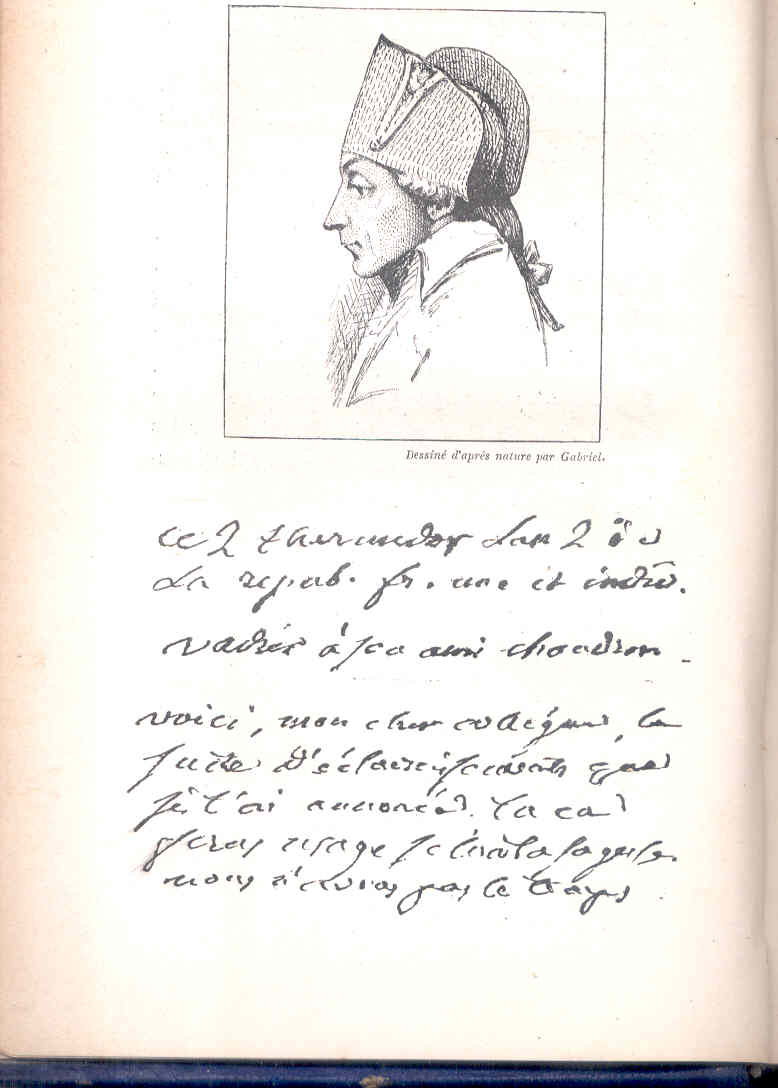 Dessiné d'après nature par Gabriel.
ce 2 thermidor Lan 2 de
La repub. fr. une et indiv.
vadier à son ami choudron
voici, mon cher collégue, la
suite d'éclaircissements que
je t'ai annoncés. tu en
feras usage selon ta sagesse
nous n'avons pas le temps